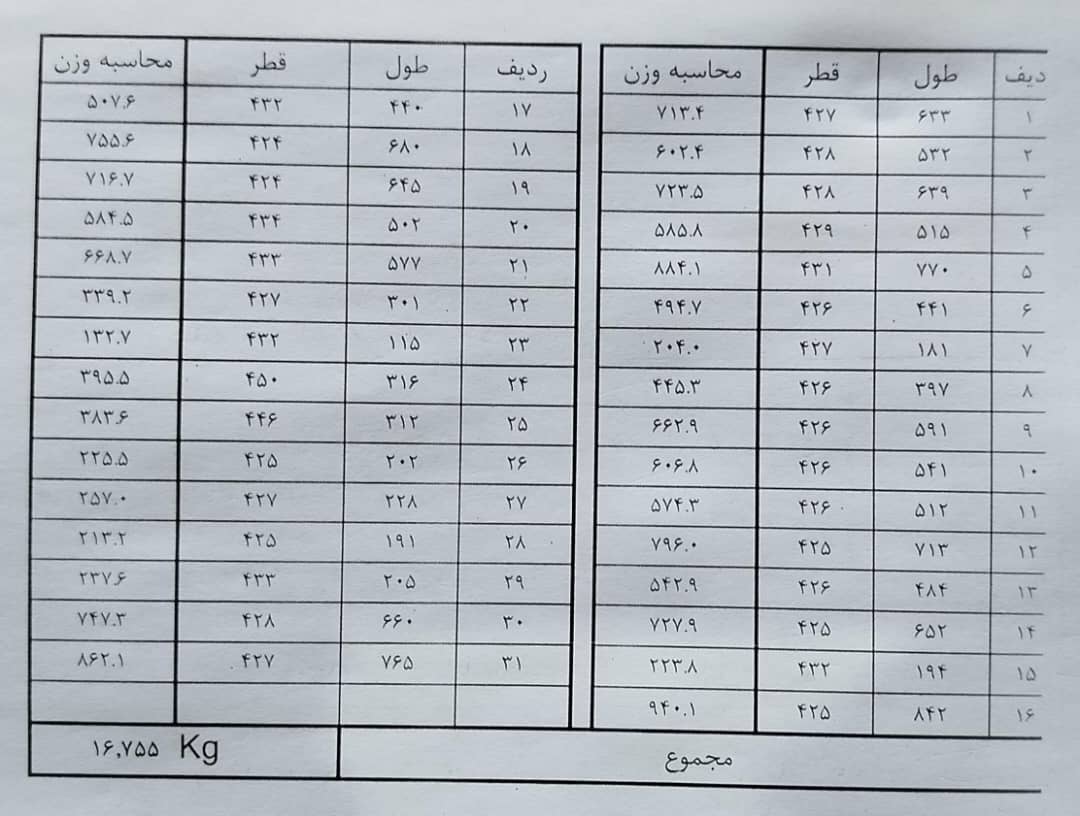 دیف طول قطر محاسبه وزن
۱ ۶۳۳ ۴۲۷ ۷۱۳.۴
۲ ۵۳۲ ۴۲۸ ۶۰۲.۴
۳ ۶۳۹ ۴۲۸ ۷۲۳.۵
۴ ۵۱۵ ۴۲۹ ۵۸۵.۸
۵ ۷۷۰ ۴۳۱ ۸۸۴.۱
۶ ۴۴۱ ۴۲۶ ۴۹۴.۷
۷ ۱۸۱ ۴۲۷ ۲۰۴.۰
۸ ۳۹۷ ۴۲۶ ۴۴۵.۳
۹ ۵۹۱ ۴۲۶ ۶۶۲.۹
۱۰ ۵۴۱ ۴۲۶ ۶۰۶.۸
۱۱ ۵۱۲ ۴۲۶ ۵۷۴.۳
۱۲ ۷۱۳ ۴۲۵ ۷۹۶.۰
۱۳ ۴۸۴ ۴۲۶ ۵۴۲.۹
۱۴ ۶۵۲ ۴۲۵ ۷۲۷.۹
۱۵ ۱۹۴ ۴۳۲ ۲۲۳.۸
۱۶ ۸۴۲ ۴۲۵ ۹۴۰.۱
ردیف طول قطر محاسبه وزن
۱۷ ۴۴۰ ۴۳۲ ۵۰۷.۶
۱۸ ۶۸۰ ۴۲۴ ۷۵۵.۶
۱۹ ۶۴۵ ۴۲۴ ۷۱۶.۷
۲۰ ۵۰۲ ۴۳۴ ۵۸۴.۵
۲۱ ۵۷۷ ۴۳۳ ۶۶۸.۷
۲۲ ۳۰۱ ۴۲۷ ۳۳۹.۲
۲۳ ۱۱۵ ۴۳۲ ۱۳۲.۷
۲۴ ۳۱۶ ۴۵۰ ۳۹۵.۵
۲۵ ۳۱۲ ۴۴۶ ۳۸۳.۶
۲۶ ۲۰۲ ۴۲۵ ۲۲۵.۵
۲۷ ۲۲۸ ۴۲۷ ۲۵۷.۰
۲۸ ۱۹۱ ۴۲۵ ۲۱۳.۲
۲۹ ۲۰۵ ۴۳۳ ۲۳۷.۶
۳۰ ۶۶۰ ۴۲۸ ۷۴۷.۳
۳۱ ۷۶۵ ۴۲۷ ۸۶۲.۱
مجموع ۱۶,۷۵۵ Kg